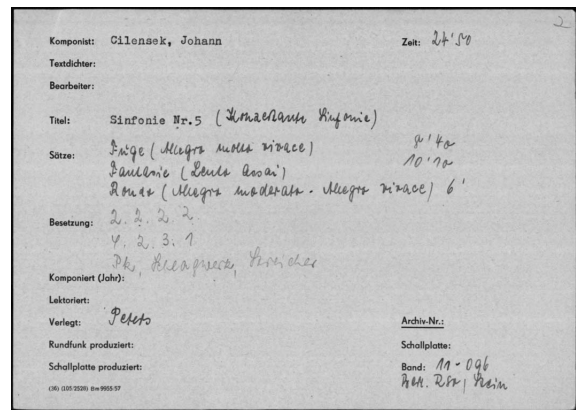 2
Komponist: Cilensek, Johann Zeit: 24'50
Textdichter:
Bearbeiter:
Titel: Sinfonie Nr.5 (Konzertante Sinfonie)
Sätze: Fuge (Allegro molto vivace) 8'40
Fantasie (Lento assai) 10'10
Rondo (Allegro moderato - Allegro vivace) 6'
Besetzung: 2. 2. 2. 2.
4. 2. 3. 1
Pk, Schlagwerk, Streicher
Komponiert (Jahr):
Lektoriert:
Verlegt: Peters Archiv-Nr.:
Rundfunk produziert: Schallplatte:
Schallplatte produziert: Band: 11-096
(36) (105/2529) Bm 9955/57